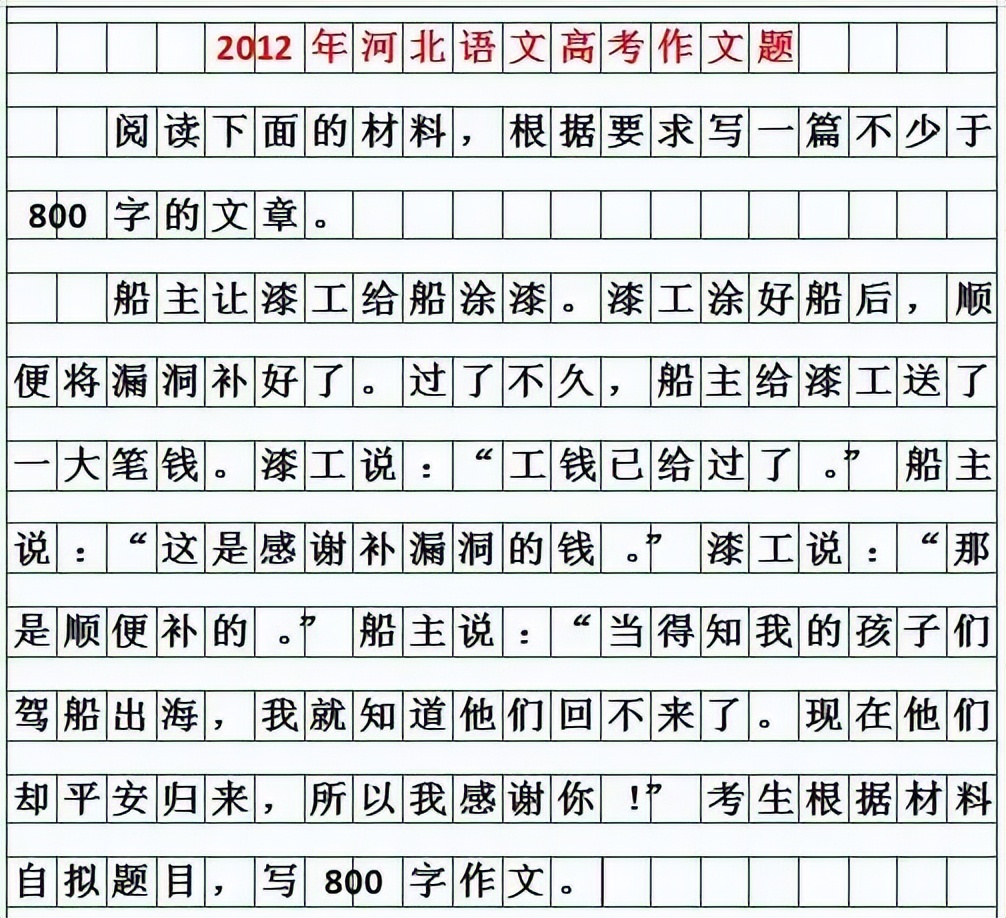 2012年河北语文高考作文题
阅读下面的材料，根据要求写一篇不少于
800字的文章。
船主让漆工给船涂漆。漆工涂好船后，顺
便将漏洞补好了。过了不久，船主给漆工送了
一大笔钱。漆工说：“工钱已给过了。”船主
说：“这是感谢补漏洞的钱。”漆工说：“那
是顺便补的。”船主说：“当得知我的孩子们
驾船出海，我就知道他们回不来了。现在他们
却平安归来，所以我感谢你!”考生根据材料
自拟题目，写800字作文。